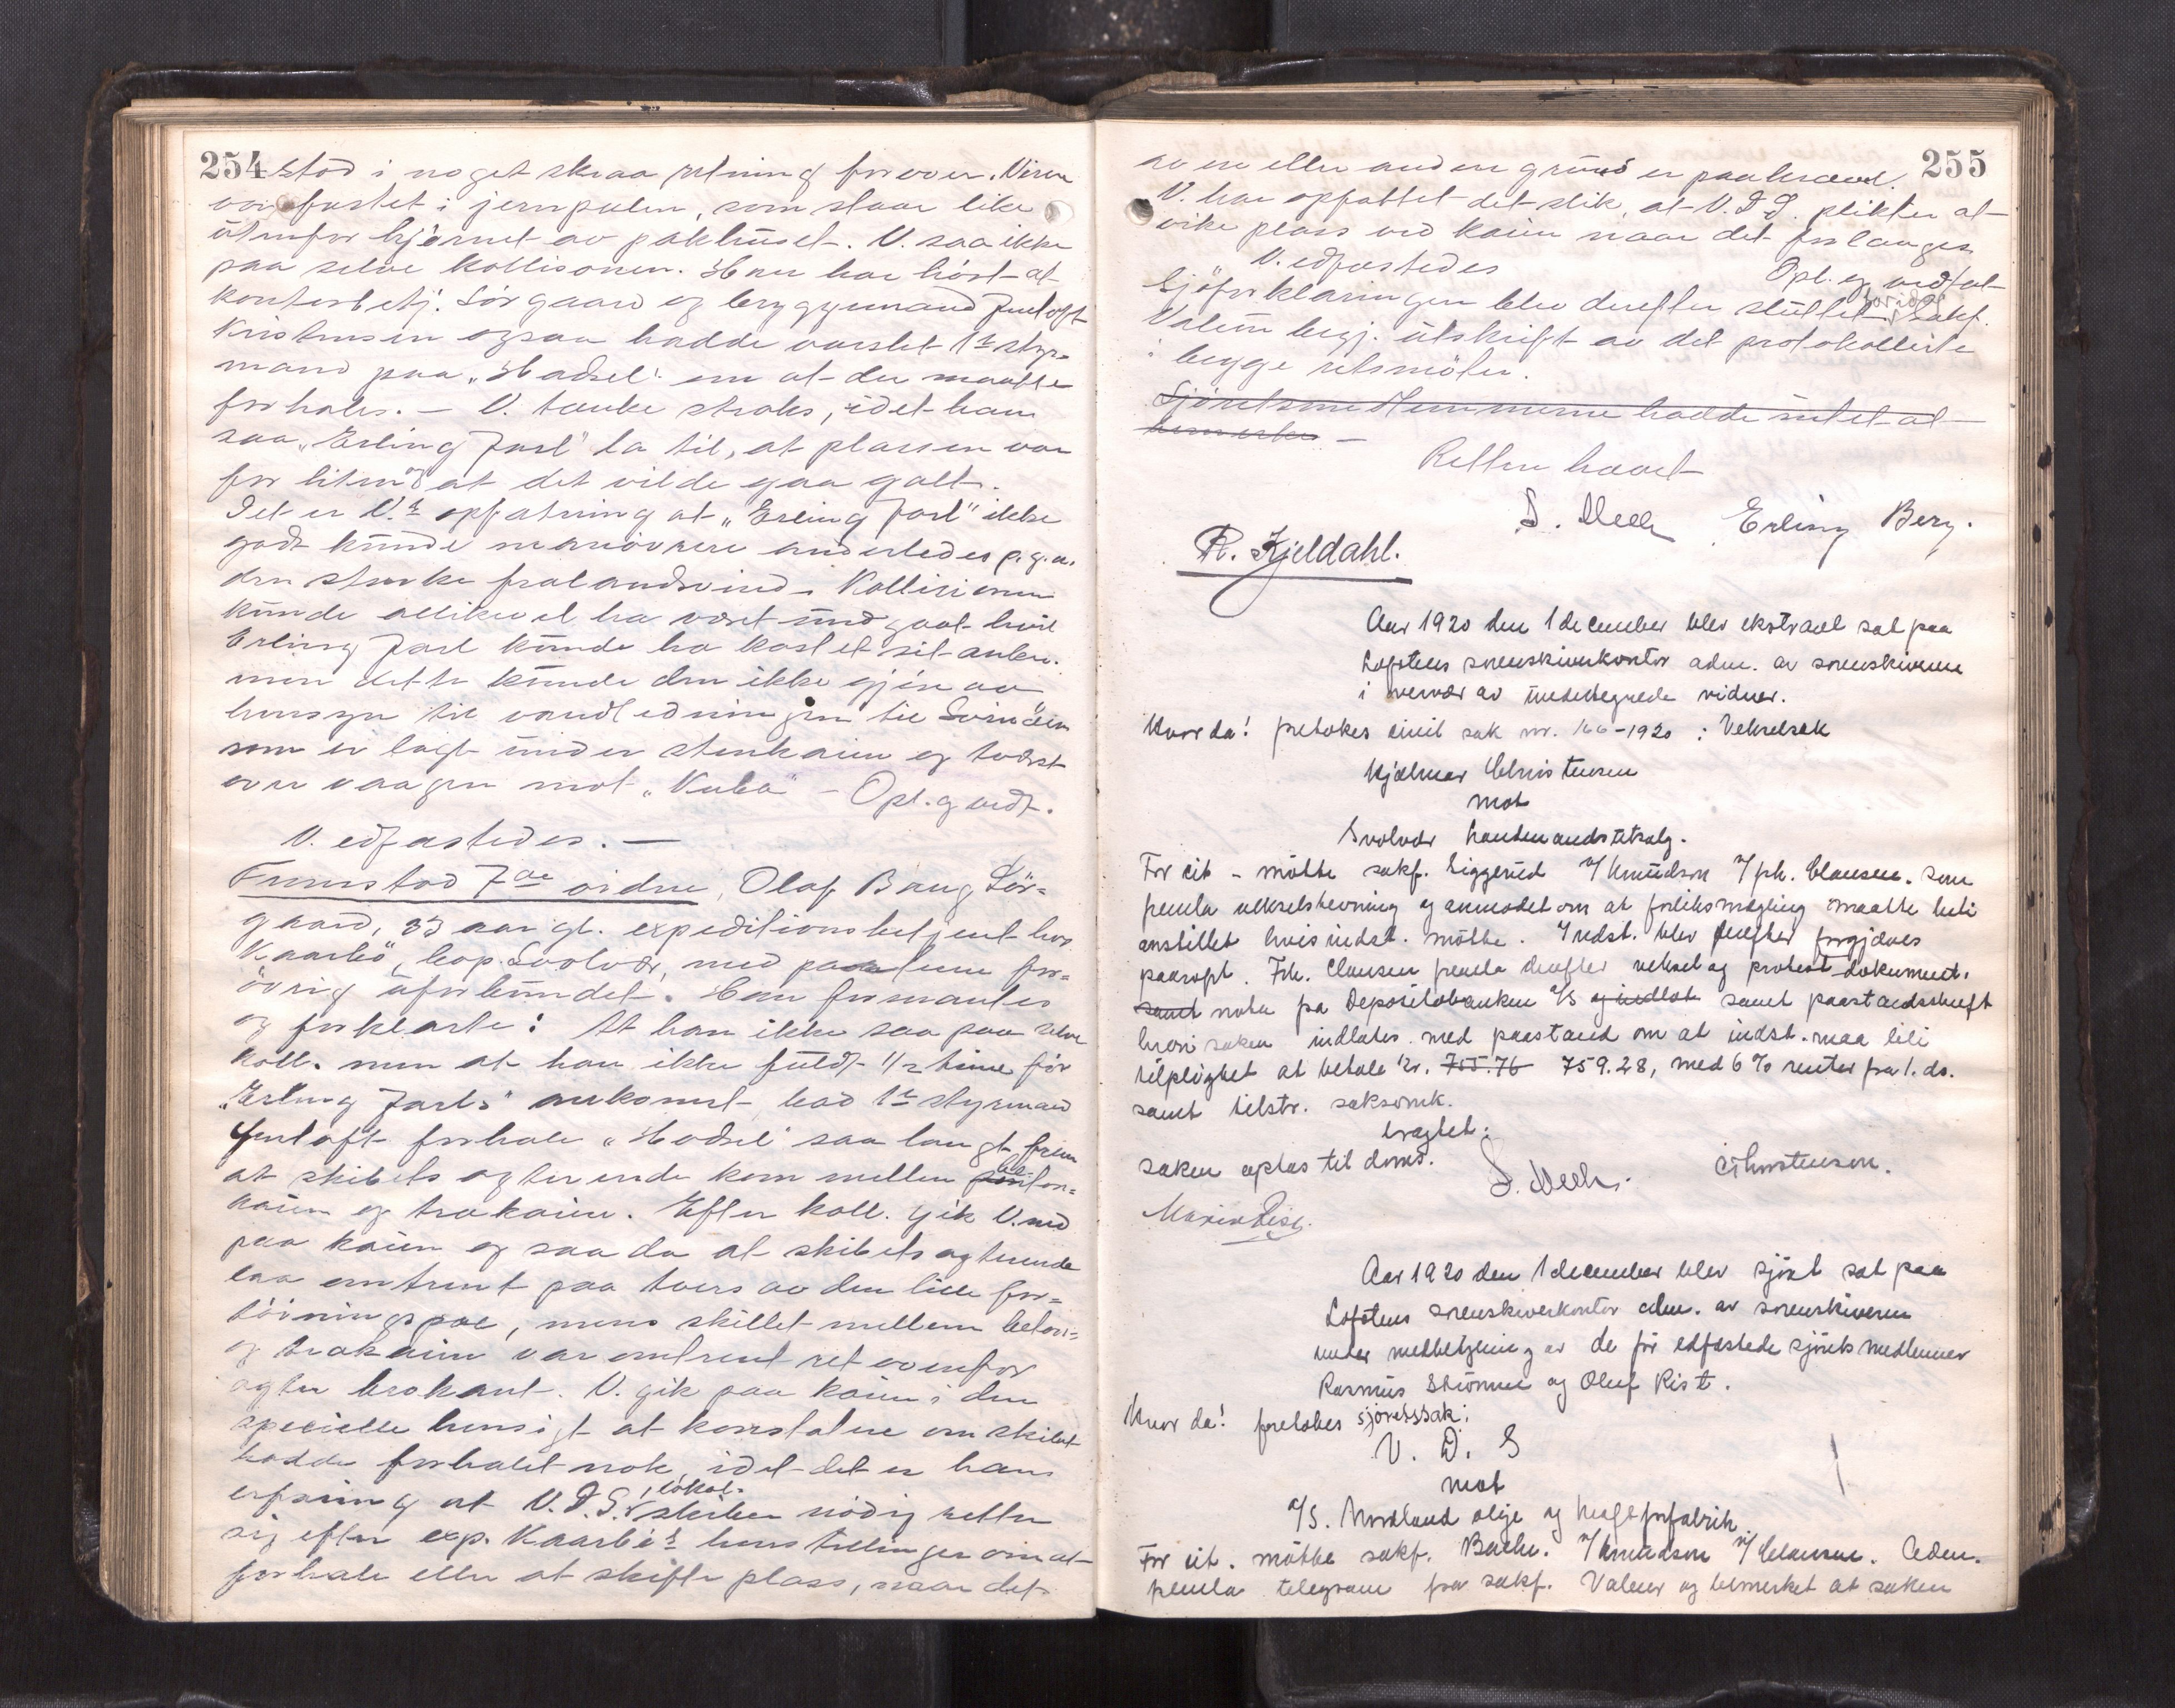 254 stod i noget skraa retning forover. Viren
var fastet i jernpælen, som staar like
utenfor hjørnet av pakhuset. V. saa ikke
paa selve kollisionen. Han har hørt at
kontorbetj. Sørgaard og bryggemand Jentoft
Kristensen ogsaa hadde varslet 1ste styr-
mand paa „Hadsel" om at den maatte
forhales. – V. tænkte straks, idet han
saa „Erling Jarl" la til, at plassen var
for liten og at det vilde gaa galt.
Det er V.s opfatning at „Erling Jarl" ikke
godt kunde manøvrere anderledes p.g.a.
den sterke fralandsvind. Kollisionen
kunde allikevel ha været undgaat hvis
Erling Jarl kunde ha kastet sit anker.
men dette kunde den ikke gjøre av
hensyn til vandledningen til Svinøen
som er lagt under stenkaien og tværst
over vaagen mot „Kuba" – Opl. og vedt.
V. edfæstedes. –
Fremstod 7de vidne, Olaf Bang Sør-
gaard, 33 aar gl. expeditionsbetjent hos
Kaarbø, bop. Svolvær, med parterne for-
øvrig uforbundet. Han formantes
og forklarte: At han ikke saa paa selve
koll. men at han ikke fuldt 1/2 time før
„Erling Jarls" ankomst bad 1ste styrmand
Jentoft forhale „Hadsel" saa langt frem
at skibets agterende kom mellem beton-
kaien og trækaien. Efter koll. gik V. ned
paa kaien og saa da at skibets agterende
laa omtrent paa tvers av den lille for-
tøiningspæl, mens skillet mellem beton-
og trækaien var omtrent ret ovenfor
agter brokant. V. gik paa kaien i den
specielle hensigt at konstatere om skibet
hadde forhalet nok, idet det er hans
erfaring at V.D.S. lokal- skiber nødig retter
sig efter exp. Kaarbø's henstillinger om at
forhale eller at skifte plass, naar det
255
av en eller anden grund er paakrævd.
V. har opfattet det slik, at V.D.S. plikter at
vike plass ved kaien naar det forlanges
V. edfæstedes Opl. og vedtat
Sjøforklaringen blev derefter sluttet. Sakf.
Valeur begj. utskrift av det protokollerte
i begge retsmøter.
Sjøretsmedlemmerne hadde intet at
bemerke –
Retten hævet
S. Mech Erling Berg.
R. Kjeldahl.
Aar 1920 den 1 december blev ekstraret sat paa
Lofotens sorenskriverkontor adm. av sorenskriveren
i overvær av undertegnede vidner.
Hvorda! foretokes civil sak nr. 166-1920 : Vekselsak
Hjalmar Christensen
mot
Svolvær handemandsutsalg.
For cit – møtte sakf. Siggerud v/ Knudson v/ frk. Clausen. som
fremla vekselstevning og anmodet om at forliksmægling maatte bli
anstillet hvis indst. møtte. Indst. blev derefter forgjæves
paaropt. Frk. Clausen fremla derefter veksel og protest-dokument.
samt nota fra Depositobanken A/S og indlot samt paastandsskrift
hvori saken indlates med paastand om at indst. maa bli
tilpligtet at betale kr. 755.76 759.28, med 6 % renter fra 1. ds.
samt tilstr. saksomk.
bragtet:
saken optas til doms.
S. Mech. C. Thorstensen.
Aar 1920 den 1 december blev sjøret sat paa
Lofotens sorenskriverkontor adm. av sorenskriveren
under medbetjening av de før edfæstede sjøretsmedlemmer
Rasmus Strømme og Oluf Rist.
Hvor da! foretokes sjøretssak:
V. D. S
mot
A/S. Nordland olje og kraftforfabrik
For cit. møtte sakf. Bache. v/ Knudson v/ Clausen. Adm.
fremla telegram fra sakf. Valeur og bemerket at saken